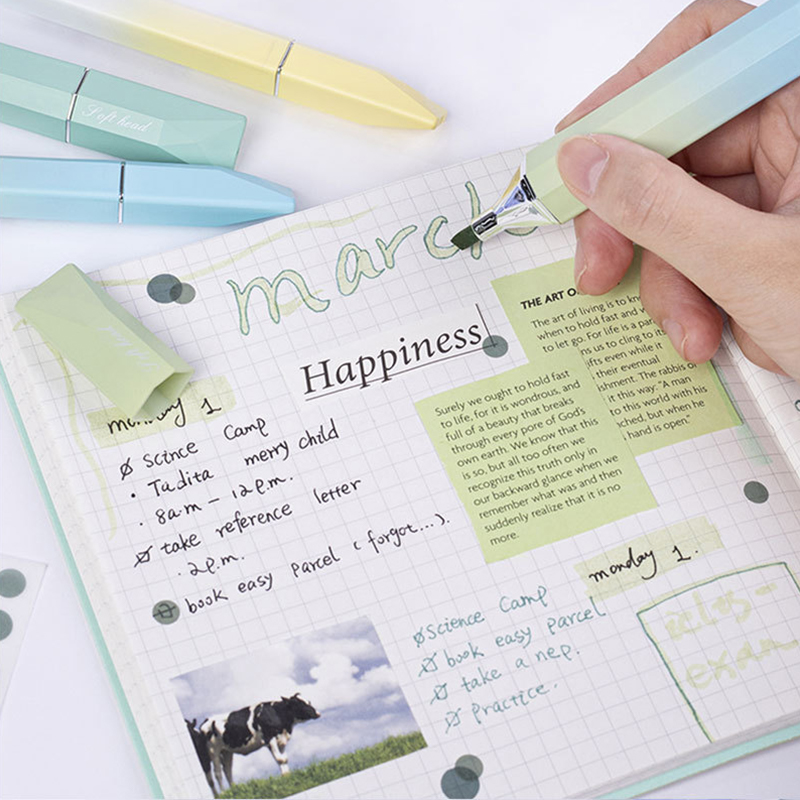 Soft head
march
Happiness
THE ART O
The art of living is to
when to hold fast and
to let go. For life is a
us to cling to its
gifts even while it
their eventual
The rabbis of
it this way: "A man
to this world with his
but when he
hand is open."
Surely we ought to hold fast
to life, for it is wondrous, and
full of a beauty that breaks
through every pore of God's
own earth. We know that this
is so, but all too often we
recognize this truth only in
our backward glance when we
remember what was and then
suddenly realize that it is no
more.
monday 1
Scince Camp
Tadita merry child
8a.m - 12p.m.
take reference letter
2p.m.
book easy parcel (forgot...).
monday 1.
Science Camp
book easy parcel
take a nep.
practice.
exam